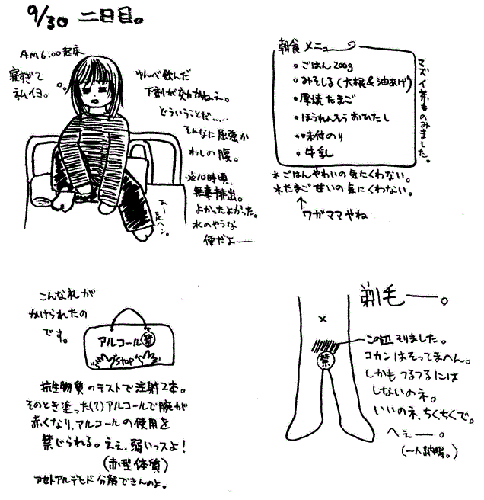 9/30 二日目。
AM6:00起床
寝すぎて
ネムイヨ。
ゆんべ飲んだ
下剤が効かねえ。
どういうことだ……
そんなに頑強か
わしの腹。
無事排出。
よかったよかった。
水のような
便だよ——
朝食メニュー
・ごはん200g
・みそしる(大根&油あげ)
・厚焼たまご
・ほうれんそう おひたし
・味付のり
・牛乳
マズイ茶ものみました。
*ごはんやわい。気にくわない。
*たまご甘い。気にくわない。
↑
ワガママやね
こんな札が
かけられたの
です。
アルコール禁
STOP
抗生物質のテストで注射2本。
そのとき塗った(?)アルコールで腕が
赤くなり、アルコールの使用を
禁じられる。ええ、弱いっスよ!
(赤型体質)
アセトアルデヒド分解できんのよ。
剃毛——。
禁
この辺 そりました。
コカンはそってまへん。
しかもつるつるには
しないのネ。
いいのネ、ちくちくで。
へぇー——。
(一人説明。)